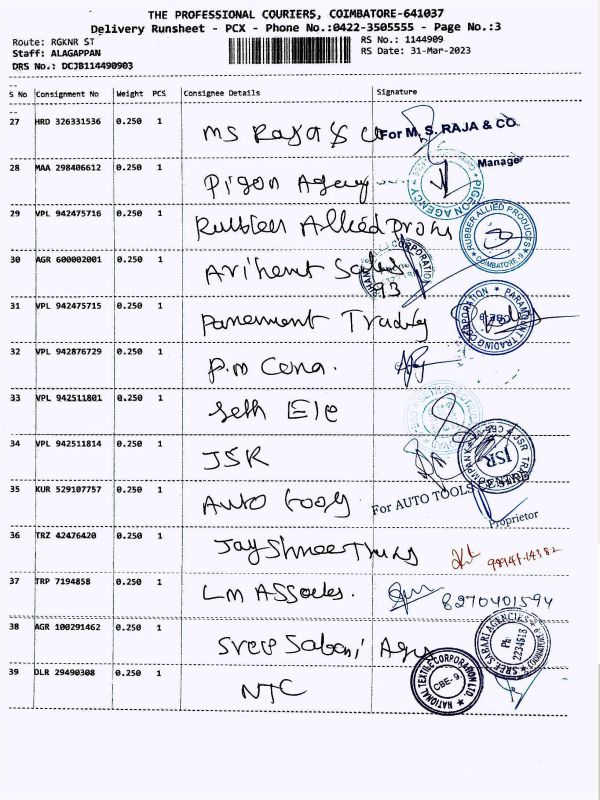 THE PROFESSIONAL COURIERS, COIMBATORE-641037
Delivery Runsheet - PCX - Phone No.:0422-3505555 - Page No.:3
Route: RGKNR ST
RS No.: 1144909
Staff: ALAGAPPAN
RS Date: 31-Mar-2023
DRS No.: DCJB114490903
S No Consignment No Weight PCS Consignee Details Signature
27 HRD 326331536 0.250 1 MS Raja & Co For M. S. RAJA & CO.
Manager
28 MAA 298406612 0.250 1 Pigon Agency PIGEON AGENCY
29 VPL 942475716 0.250 1 Rubber Allied Prods RUBBER ALLIED PRODUCTS COIMBATORE-9
30 AGR 600002001 0.250 1 Arihent CORPORATION
93
31 VPL 942475715 0.250 1 Parement Trading PARAMOUNT TRADING CORPORATION CBE-9
32 VPL 942876729 0.250 1 P.M Cena.
33 VPL 942511801 0.250 1 Seth Ele
34 VPL 942511814 0.250 1 JSR JSR TRADING COMPANY CBE-9 JSR
35 KUR 529107757 0.250 1 Auto For AUTO TOOLS CENTRE
Proprietor
36 TRZ 42476420 0.250 1 Jay Shree
37 TRP 7194858 0.250 1 LM Assoctes. 8270401594
38 AGR 100291462 0.250 1 Sree Sabari Agys SREE SABARI AGENCIES Ph: 2234518
39 DLR 29490308 0.250 1 NTC NATIONAL TEXTILE CORPORATION LTD. CBE-9.